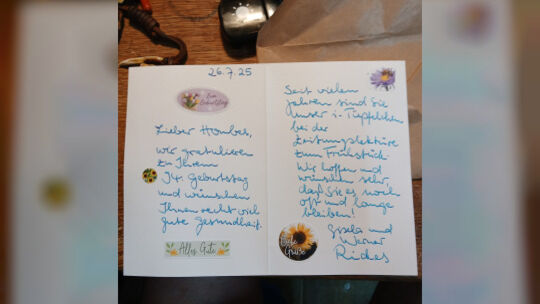 26.7.25
Zum Geburtstag
Lieber
wir gratulieren
zu Ihrem
74. Geburtstag
und wünschen
Ihnen recht viel
gute Gesundheit.
Alles Gute
Seit vielen
Jahren sind Sie
unser i-Tüpfelchen
bei der
Zeitungslektüre
zum Frühstück.
Wir hoffen und
wünschen sehr,
daß Sie es noch
oft und lange
bleiben!
Liebe
Grüße
Gisela und
Werner